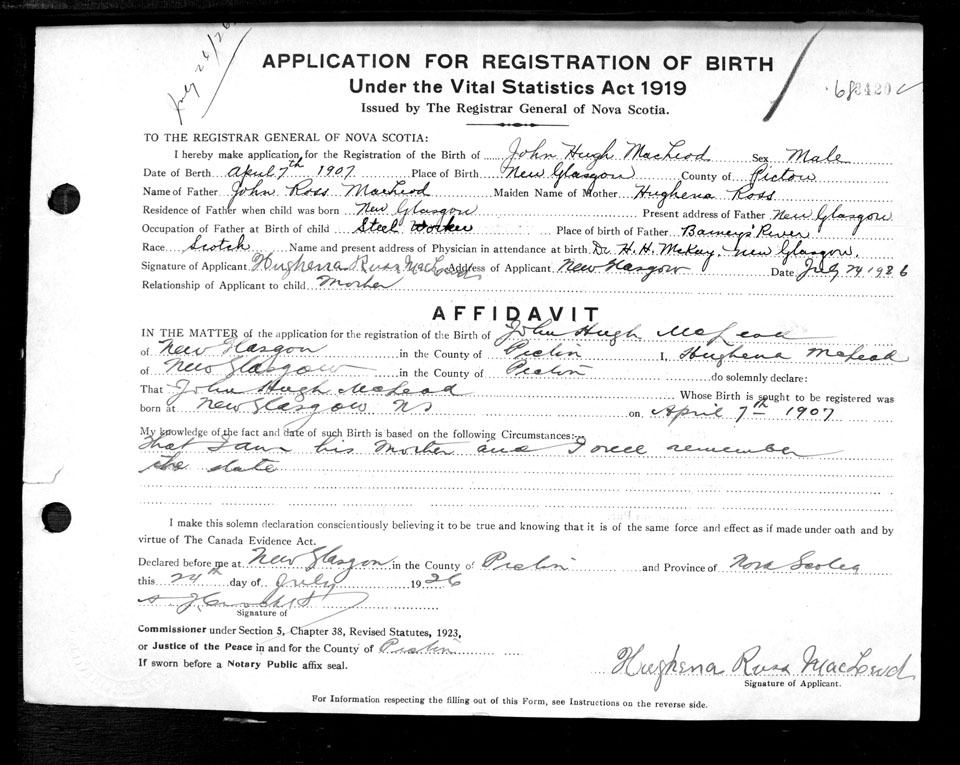 July 26/26
APPLICATION FOR REGISTRATION OF BIRTH
Under the Vital Statistics Act 1919
Issued by The Registrar General of Nova Scotia.
TO THE REGISTRAR GENERAL OF NOVA SCOTIA:
I hereby make application for the Registration of the Birth of John Hugh MacLeod Sex Male
Date of Berth April 7th 1907 Place of Birth New Glasgow County of Pictou
Name of Father John Ross MacLeod Maiden Name of Mother Hughena Ross
Residence of Father when child was born New Glasgow Present address of Father New Glasgow
Occupation of Father at Birth of child Steel Worker Place of birth of Father Barneys River
Race Scotch Name and present address of Physician in attendance at birth Dr. H. H. McKay, New Glasgow.
Signature of Applicant Hughena Ross MacLeod Address of Applicant New Glasgow Date July 24 1926
Relationship of Applicant to child Mother
AFFIDAVIT
IN THE MATTER of the application for the registration of the Birth of John Hugh McLeod
of New Glasgow in the County of Pictou I, Hughena McLeod
of New Glasgow in the County of Pictou do solemnly declare:
That John Hugh McLeod Whose Birth is sought to be registered was
born at New Glasgow NS on April 7th 1907
My knowledge of the fact and date of such Birth is based on the following Circumstances:
that I am his Mother and I well remember
the date
I make this solemn declaration conscientiously believing it to be true and knowing that it is of the same force and effect as if made under oath and by
virtue of The Canada Evidence Act.
Declared before me at New Glasgow in the County of Pictou and Province of Nova Scotia
this 24th day of July 1926
Signature of
Commissioner under Section 5, Chapter 38, Revised Statutes, 1923,
or Justice of the Peace in and for the County of Pictou
If sworn before a Notary Public affix seal.
Hughena Ross MacLeod
Signature of Applicant.
For Information respecting the filling out of this Form, see Instructions on the reverse side.